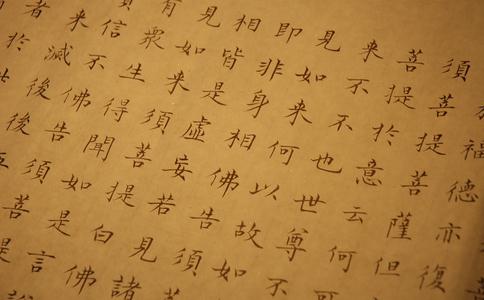 福德亦復
須菩提菩薩但
菩提於意云何
來不不也世尊不
見如來何以故如
即非身相佛告須
相皆是虛妄若見諸
見如來須菩提白佛
有眾生得聞如是言
信不佛告須菩
來滅後後
者於